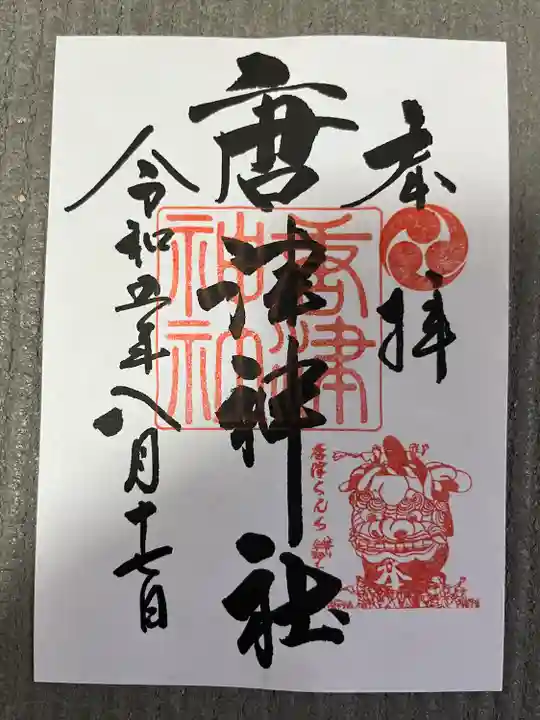 奉拝
唐津神社
唐津神社
唐津くんち
令和五年八月十七日